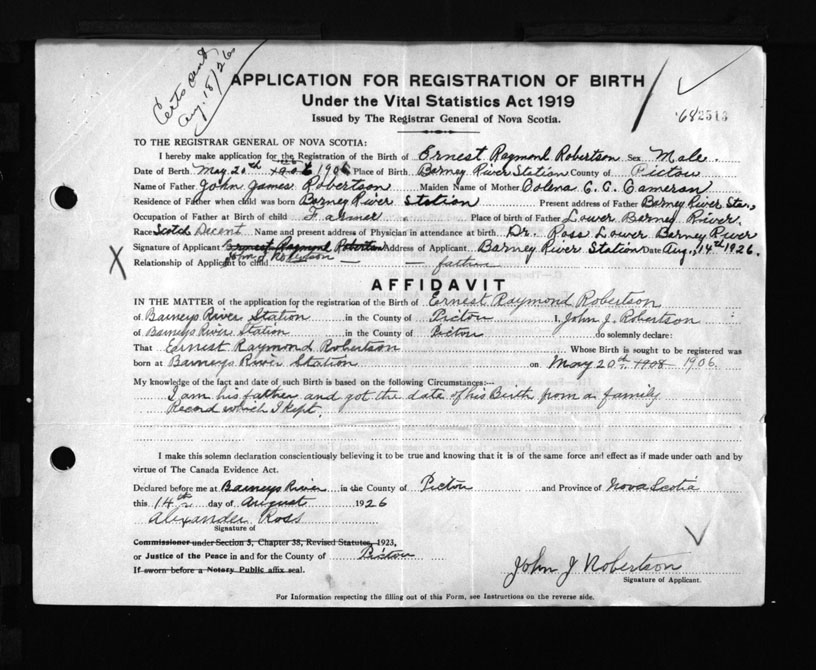 Certs sent
Aug. 18/26
APPLICATION FOR REGISTRATION OF BIRTH
Under the Vital Statistics Act 1919
Issued by The Registrar General of Nova Scotia.
682513
TO THE REGISTRAR GENERAL OF NOVA SCOTIA:
I hereby make application for the Registration of the Birth of Ernest Raymond Robertson Sex Male.
Date of Birth May 20th 1906 Place of Birth Barney River Station County of Pictou
Name of Father John James Robertson Maiden Name of Mother Dolena C. C. Cameron
Residence of Father when child was born Barney River Station Present address of Father Barney River Sta.,
Occupation of Father at Birth of child Farmer Place of birth of Father Lower Barney River.
Race Scotch Decent. Name and present address of Physician in attendance at birth Dr. Ross Lower Barney River
Signature of Applicant Ernest Raymond Robertson Address of Applicant Barney River Station Date Aug., 14th 1926.
John J Robertson
Relationship of Applicant to child father
X
AFFIDAVIT
IN THE MATTER of the application for the registration of the Birth of Ernest Raymond Robertson
of Barneys River Station in the County of Pictou I, John J. Robertson
of Barneys River Station in the County of Pictou do solemnly declare:
That Ernest Raymond Robertson Whose Birth is sought to be registered was
born at Barneys River Station on May 20th, 1908 1906.
My knowledge of the fact and date of such Birth is based on the following Circumstances:—
I am his father and got the date of his Birth from a family
Record which I kept.
I make this solemn declaration conscientiously believing it to be true and knowing that it is of the same force and effect as if made under oath and by
virtue of The Canada Evidence Act.
Declared before me at Barneys River in the County of Pictou and Province of Nova Scotia
this 14th day of August 1926
Alexander Ross
Signature of
Commissioner under Section 5, Chapter 38, Revised Statutes, 1923,
or Justice of the Peace in and for the County of Pictou
If sworn before a Notary Public affix seal.
John J Robertson
Signature of Applicant.
For Information respecting the filling out of this Form, see Instructions on the reverse side.